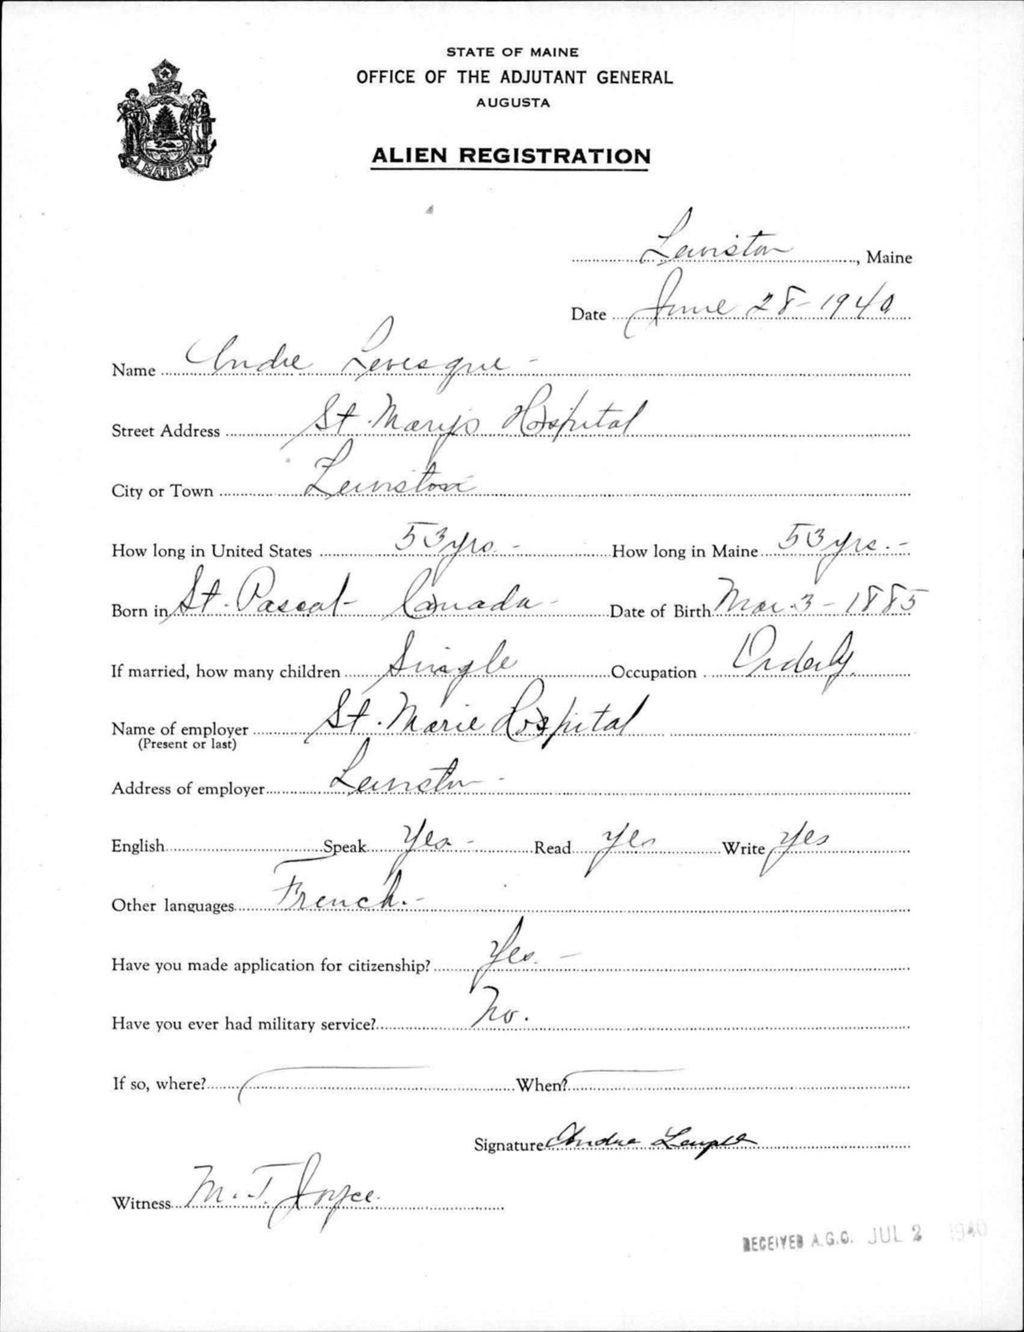 STATE OF MAINE
OFFICE OF THE ADJUTANT GENERAL
AUGUSTA
ALIEN REGISTRATION
MAINE
Lewiston, Maine
Date June 28-1940
Name Andre Levesque -
Street Address St. Marys Hospital
City or Town Lewiston
How long in United States 53 yrs. - How long in Maine 53 yrs. -
Born in St. Pascal - Canada - Date of Birth Mar. 3 - 1885
If married, how many children Single Occupation Orderly.
Name of employer St. Marie Hospital
(Present or last)
Address of employer Lewiston -
English Speak Yes - Read Yes Write Yes
Other languages French. -
Have you made application for citizenship? Yes. -
Have you ever had military service? No.
If so, where? When?
Signature Andre
Witness M. T. Joyce.
RECEIVED A.G.O. JUL 2 1940